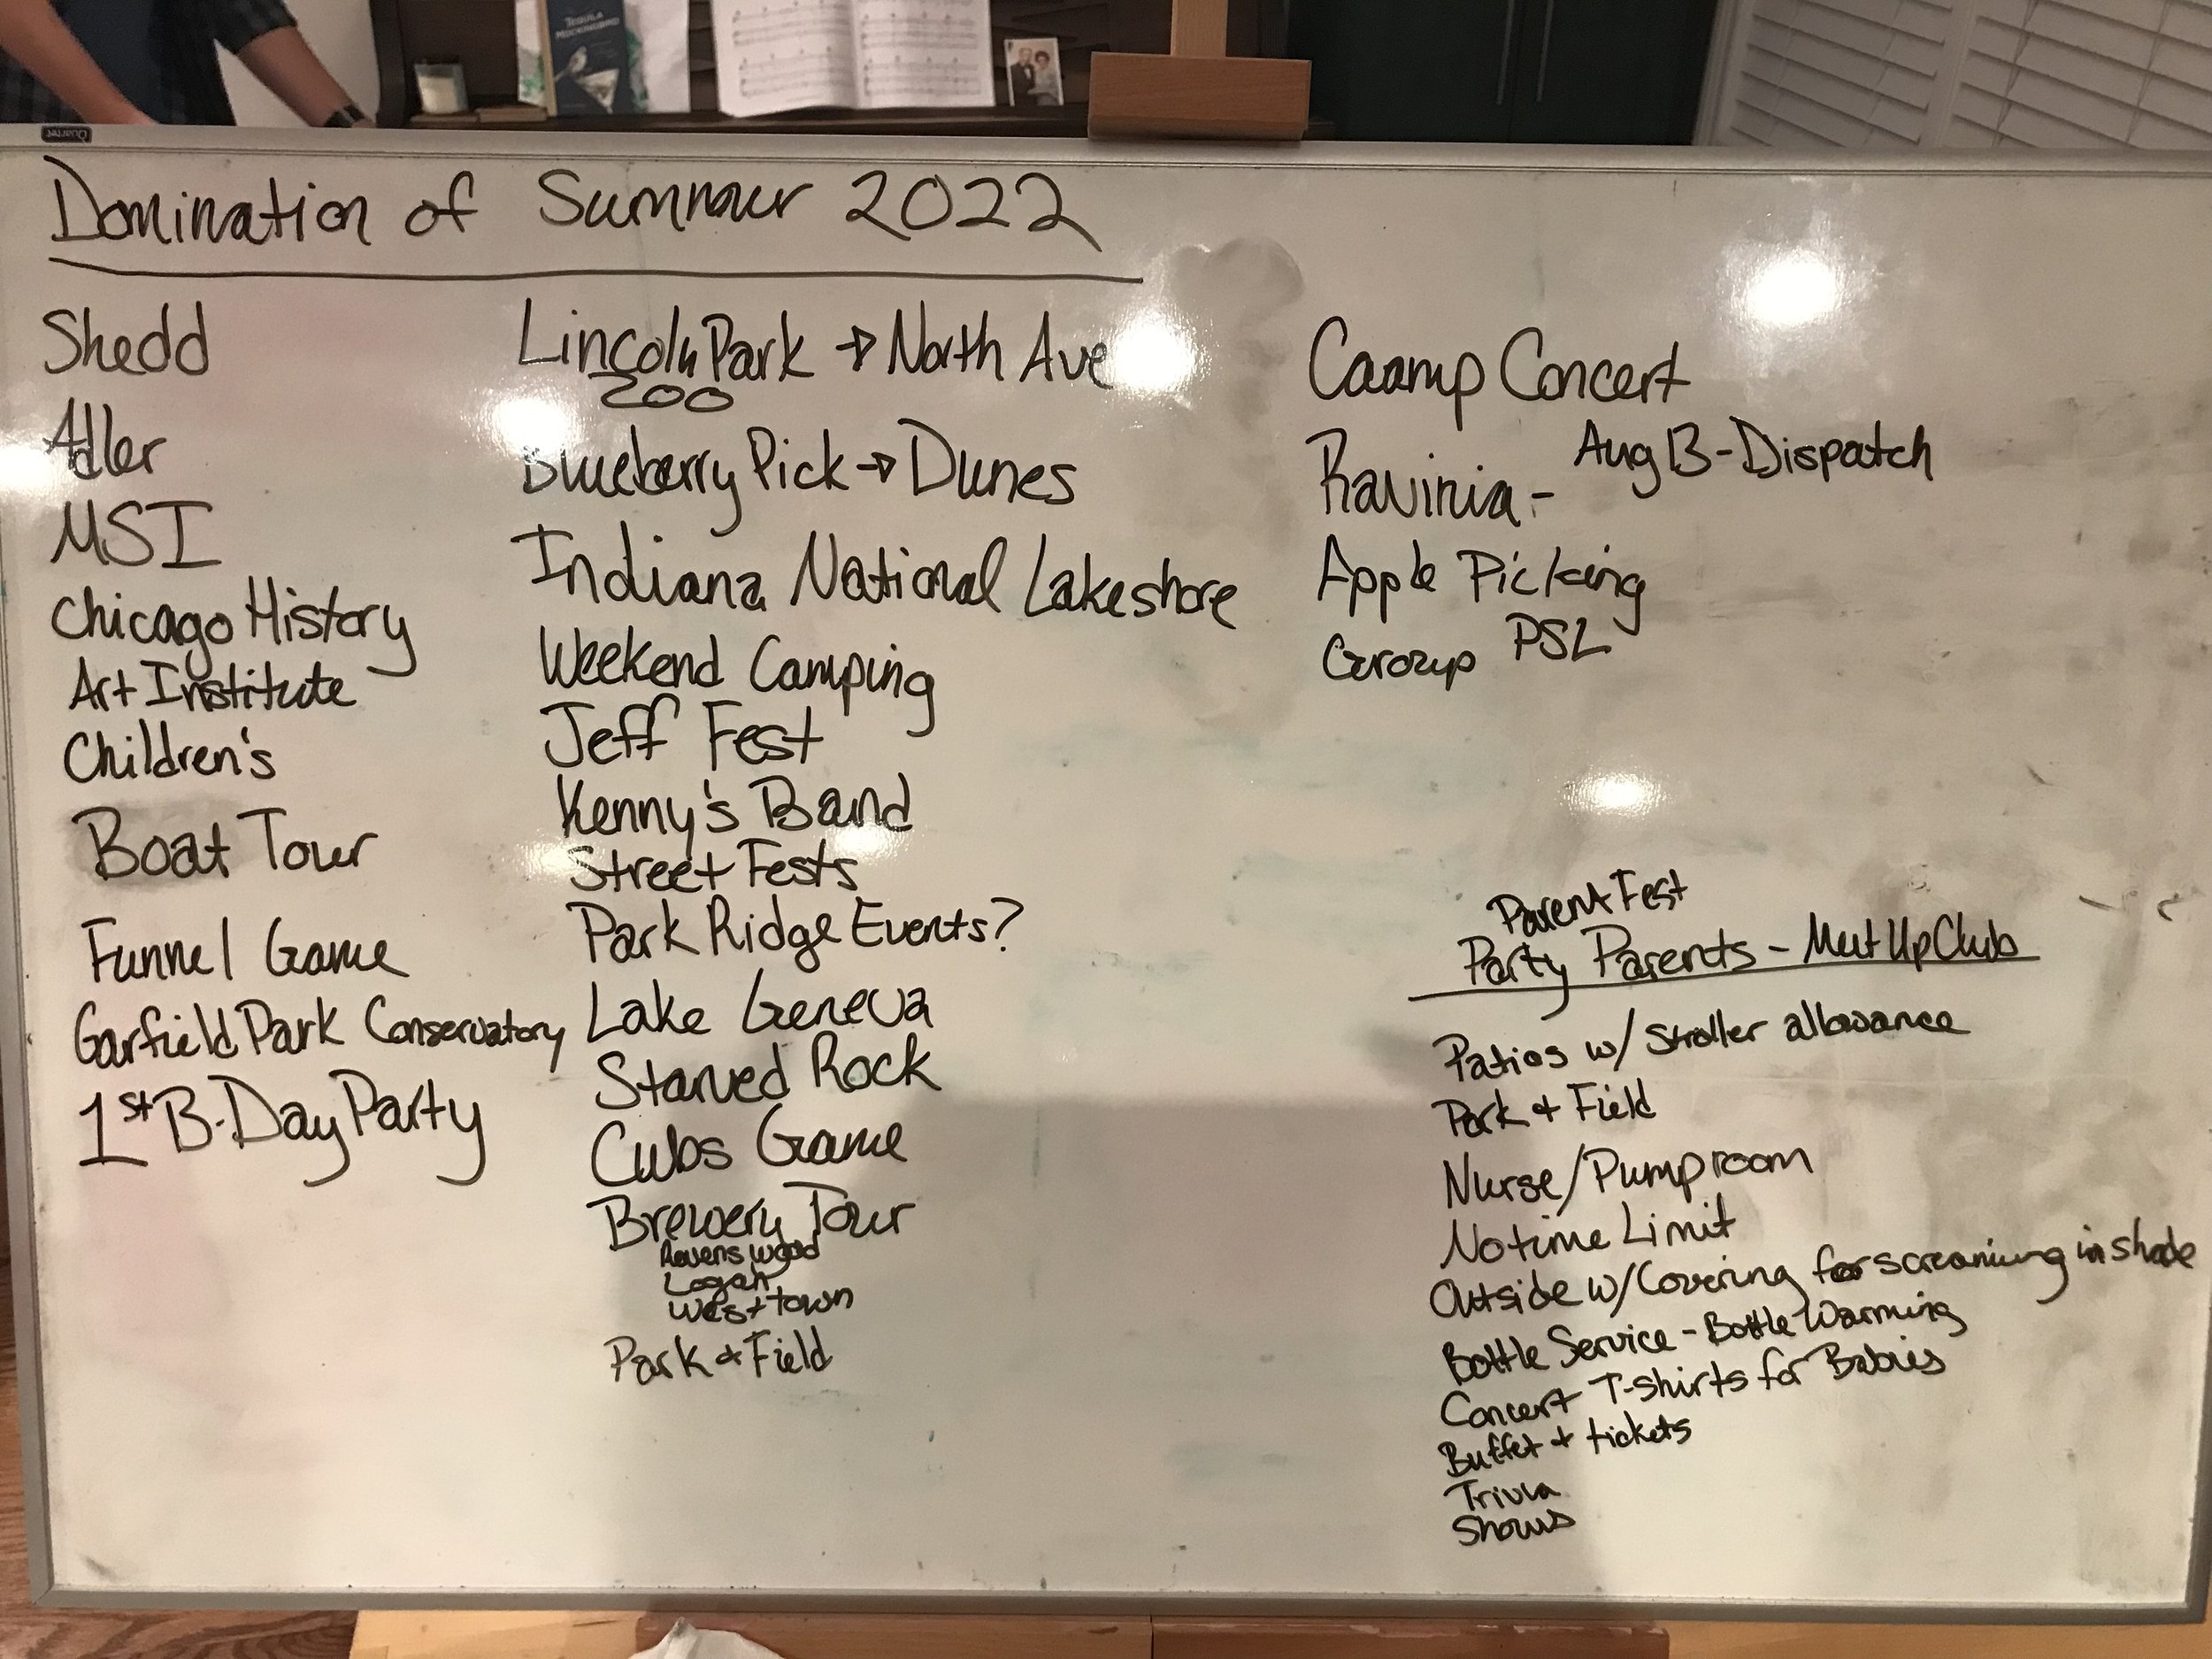 TEQUILA
MOCKINGBIRD
Quartet
Domination of Summer 2022
Shedd
Adler
MSI
Chicago History
Art Institute
Children's
Boat Tour
Funnel Game
Garfield Park Conservatory
1st B-Day Party
Lincoln Park → North Ave
Zoo
Blueberry Pick → Dunes
Indiana National Lakeshore
Weekend Camping
Jeff Fest
Kenny's Band
Street Fests
Park Ridge Events?
Lake Geneva
Starved Rock
Cubs Game
Brewery Tour
Ravenswood
Logan
West town
Park & Field
Caamp Concert
Aug 13 - Dispatch
Ravinia -
Apple Picking
Group PSL
Parent Fest
Party Parents - Meet Up Club
Patios w/ Stroller allowance
Park & Field
Nurse/Pump room
No time Limit
Outside w/ Covering for screaming in shade
Bottle Service - Bottle Warming
Concert T-shirts for Babies
Buffet + tickets
Trivia
Shows